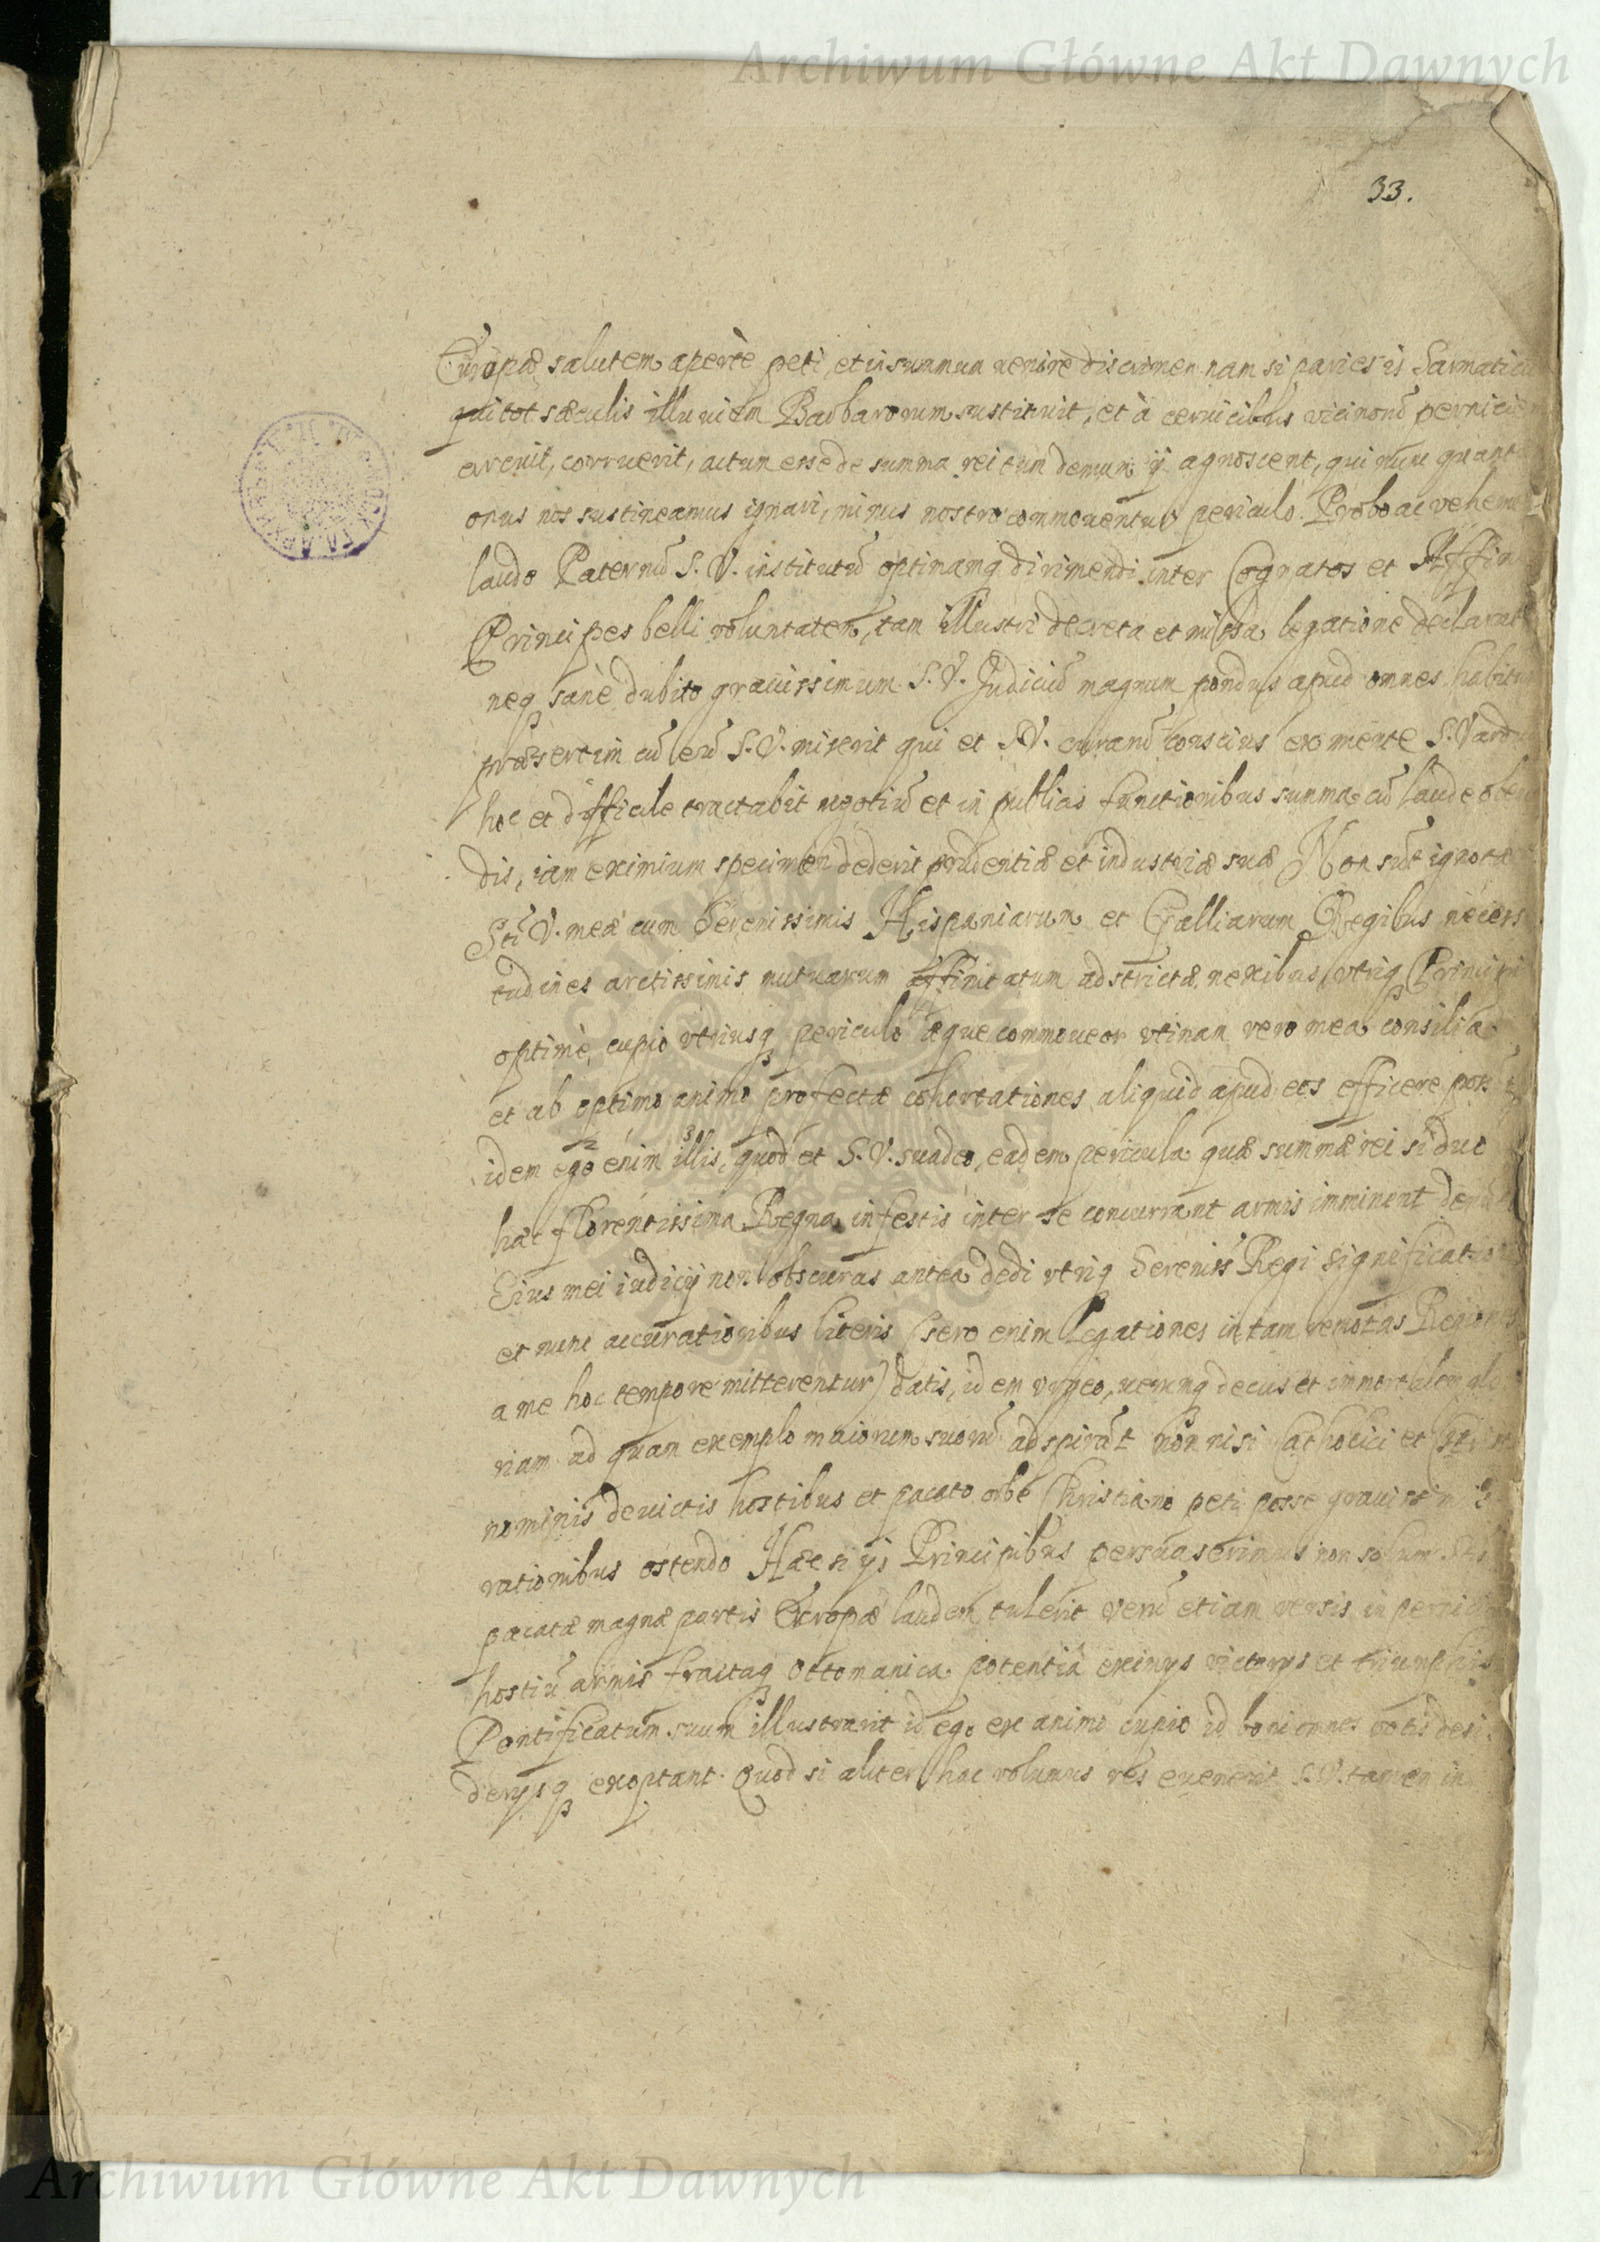 Archiwum Główne Akt Dawnych
33.
Europæ salutem apertè peti, et in summum venire discrimen nam si paries is Sarmaticu
qui tot sæculis illuviem Barbarorum sustinuit, et à cervicibus vicinorũ perniciem
arcuit, corruerit, actum esse de summa rei tum demum ij agnoscent, qui nunc quant
onus nos sustineamus ignari, minus nostro commoventur periculo. Probo ac vehemen
laudo Paternũ S. V. institutũ optimamq dirimendi inter Cognatos et Affin
Principes belli voluntatem, tam illustri decreta et missa legatione declarat
neq sanè dubito gravissimum S. V. Judiciũ magnum pondus apud omnes habitu
præsertim cũ eũ S. V. miserit qui et S. V. curarũ conscius ex mente S. V. ardu
hoc et difficile tractabit negotiũ et in publicis functionibus summa cũ laude obeun
dis, iam eximium specimen dederit prudentiæ et industriæ suæ Non sũt ignotæ
Sti V. meæ cum Serenissimis Hispaniarum et Galliarum Regibus necess
tudines arctissimis mutuarum affinitatum adstrictæ nexibus, utriq Principi
optimè cupio utriusq periculo æque commoveor utinam vero mea consilia
et ab optimo animo profectæ cohortationes aliquid apud eos efficere poss
idem ego enim illis, quod et S. V. suadeo, eadem pericula quæ summæ rei si duo
hæc florentissima Regna infestis inter se concurrant armis imminent
Eius mei iudicij non obscuras antea dedi utriq Sereniss Regi significatio
et nunc accuratioribus literis (sero enim legationes in tam remotas Regiones
a me hoc tempore mitterentur) datis, idem urgeo, verumq decus et immortalem glo
riam ad quam exemplo maiorum suorũ adspirãt non nisi Catholici et
nominis devictis hostibus et pacato orbe Christiano peti posse gravissimis
rationibus ostendo Hæc si ijs Principibus persuaserimus non solum
pacatæ magnæ partis Europæ laudem tulerit verũ etiam versis in pernicie
hostiũ armis fractaq Ottomanica potentia eximijs victorijs et triumphis
Pontificatum suum illustrarit id ego ex animo cupio id boni omnes votis desi
derijsq exoptant. Quod si aliter hac volumus res evenerit S. V. tamen in
Archiwum Główne Akt Dawnych